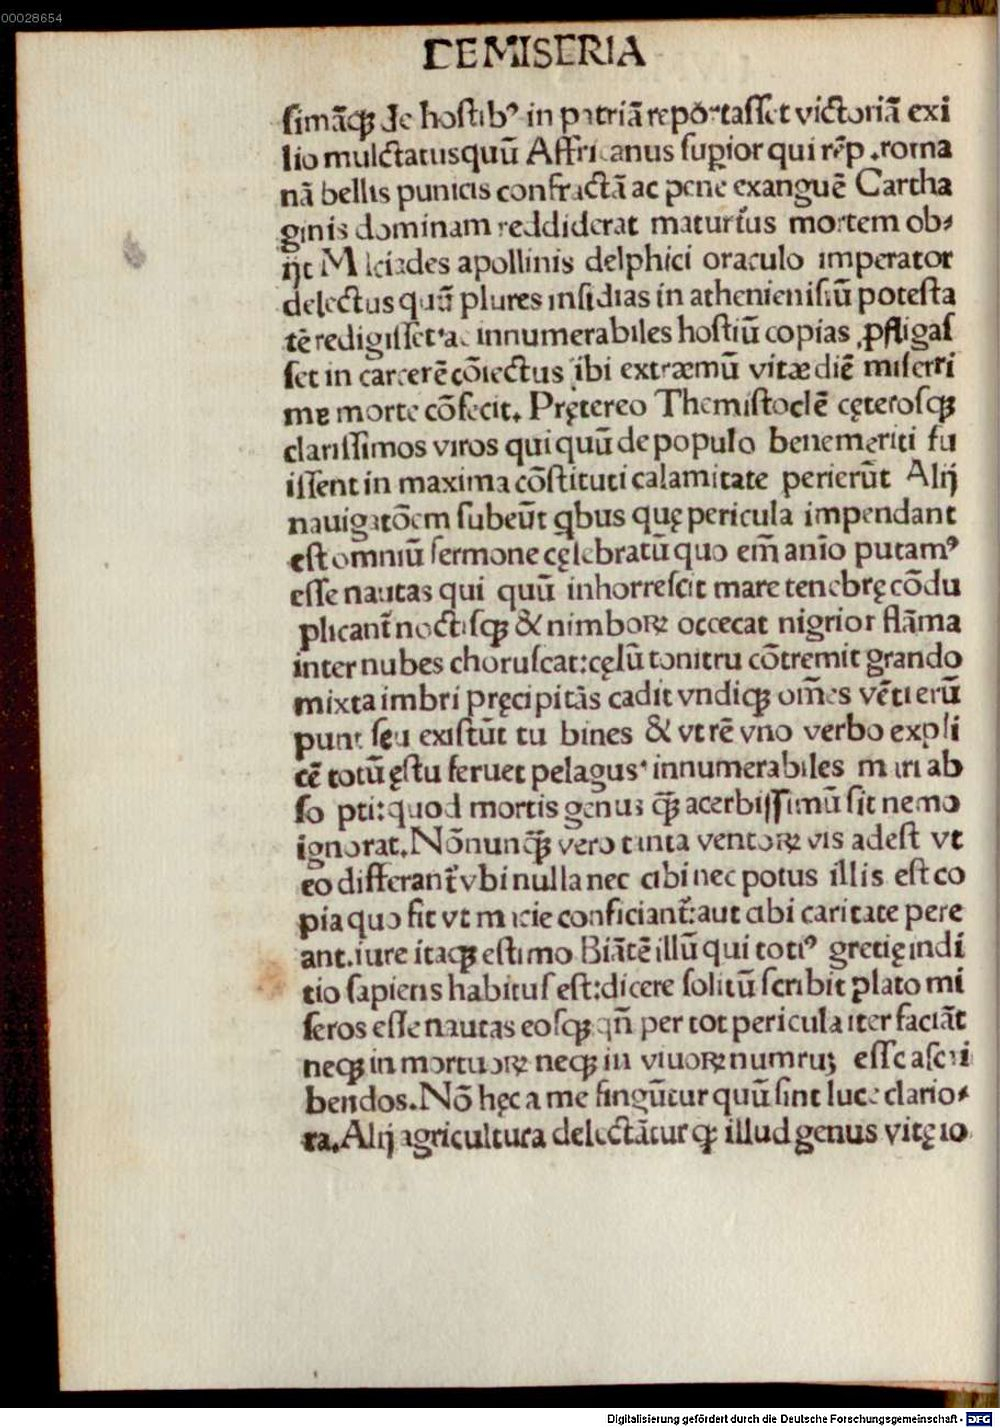 00028654
DE MISERIA
ſimāq̃ꝫ de hoſtibꝰ in patriā reportaſſet victoriā exi
lio mulctatus quū Affricanus ſuꝑior qui rēp .roma
nā bellis punicis confractā ac pene exanguē Cartha
ginis dominam reddiderat maturius mortem ob⸗
ijt Milciades apollinis delphici oraculo imperator
delectus quū plures inſidias in athenienſiū poteſta
tē redigiſſet ac innumerabiles hoſtiū copias ꝓfligaſ
ſet in carcerē cōiectus ibi extræmū vitæ diē miſerri
me morte cōfecit. Prętereo Themiſtoclē cęteroſqꝫ
clariſſimos viros qui quū de populo benemeriti fu
iſſent in maxima cōſtituti calamitate perierūt Alij
nauigatōem ſubeūt qbus quę pericula impendant
eſt omniū ſermone cęlebratū quo em̄ anīo putamꝰ
eſſe nautas qui quū inhorreſcit mare tenebrę cōdu
plicant̄ noctiſqꝫ & nimboꝝ occecat nigrior flāma
inter nubes choruſcat: cęlū tonitru cōtremit grando
mixta imbri pręcipitās cadit vndiqꝫ om̄es vēti erū
punt ſeu exiſtūt tu bines & vt rē vno verbo expli
cē totū ęſtu feruet pelagus innumerabiles mari ab
ſo pti: quod mortis genus q̃ꝫ acerbiſſimū ſit nemo
ignorat. Nōnunq̃ꝫ vero tanta ventoꝝ vis adeſt vt
eo differant̄ vbi nulla nec cibi nec potus illis eſt co
pia quo fit vt macie conficiant̄: aut cibi caritate pere
ant. iure itaqꝫ eſtimo Biātē illū qui totiꝰ gretię indi
tio ſapiens habitus eſt: dicere ſolitū ſcribit plato mi
ſeros eſſe nautas eoſqꝫ qn̄ per tot pericula iter faciāt
neqꝫ in mortuoꝝ neqꝫ in viuoꝝ numruꝫ eſſe aſcri
bendos. Nō hęc a me fingūtur quū ſint luce clario⸗
ra. Alij agricultura delectātur qꝫ illud genus vitę io
Digitalisierung gefördert durch die Deutsche Forschungsgemeinschaft - DFG